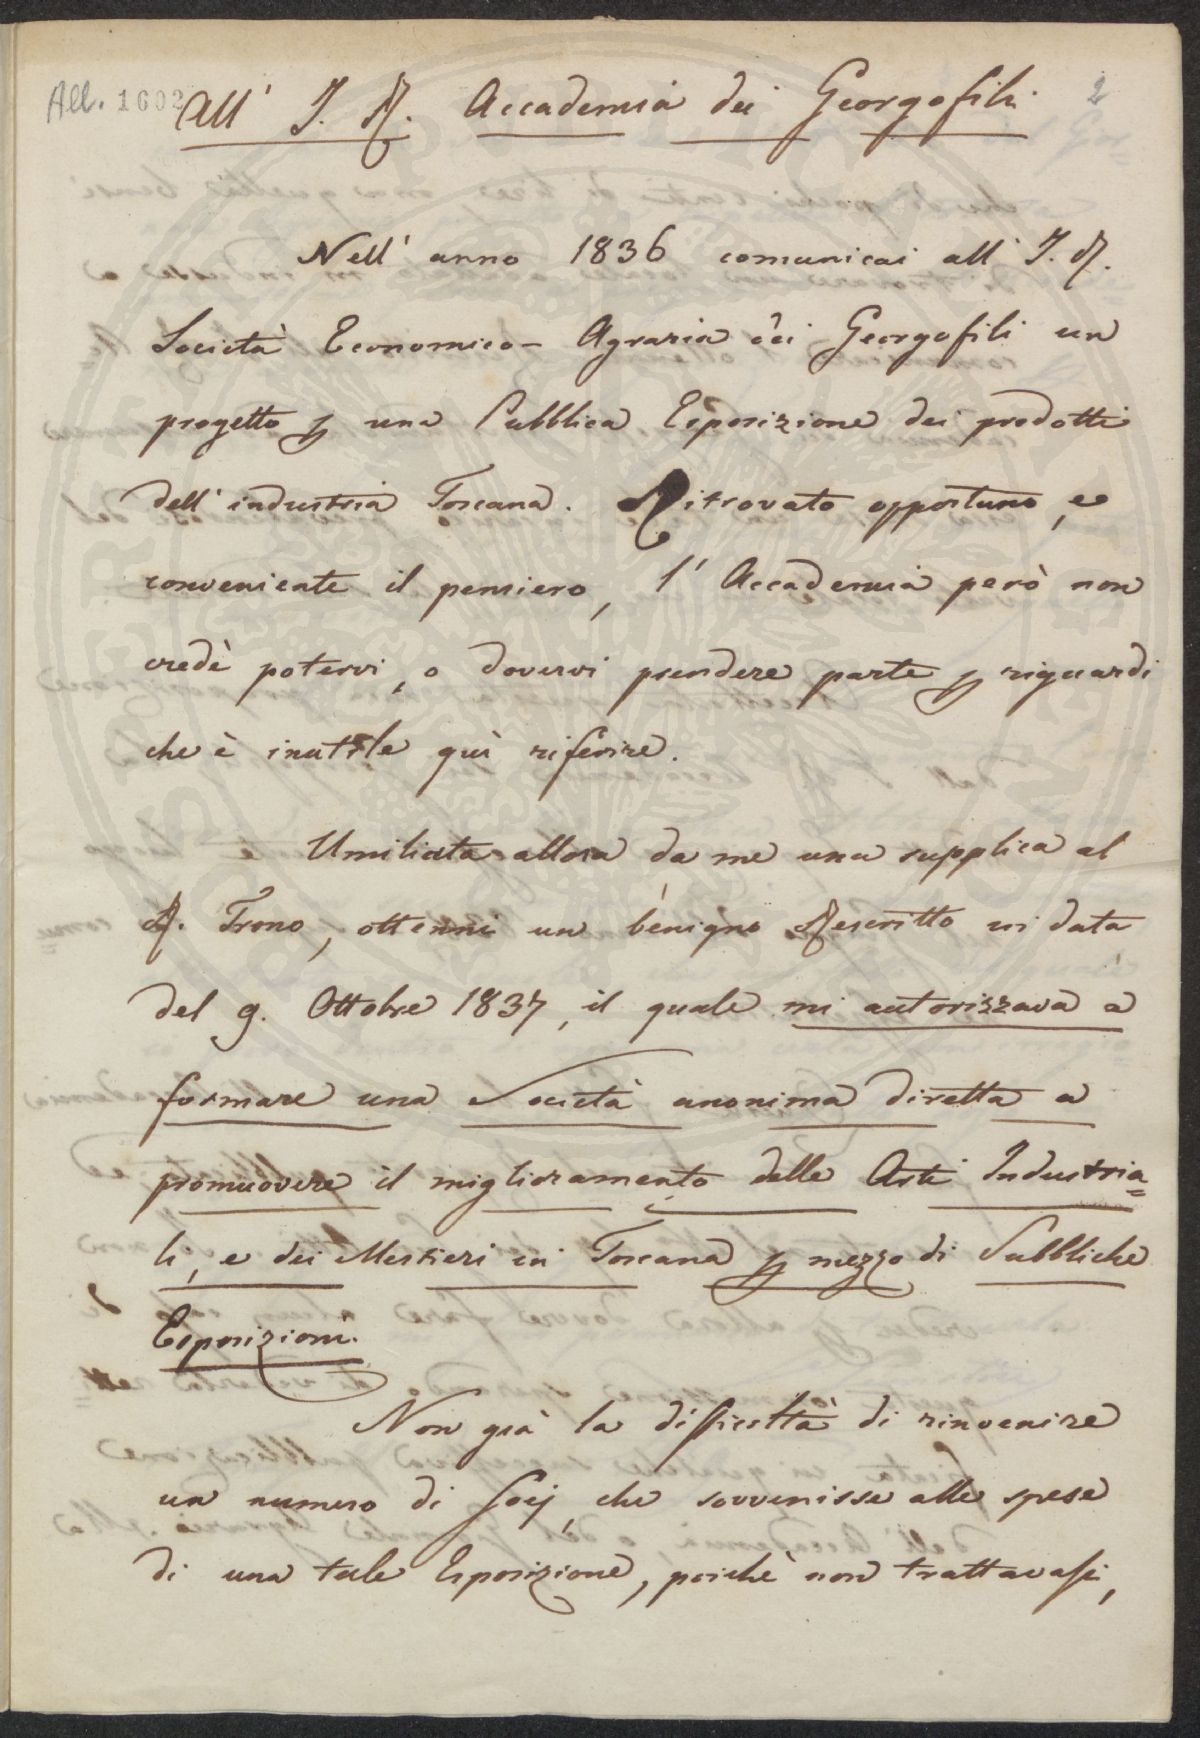 All. 1602
2
All' I. R. Accademia dei Georgofili
Nell' anno 1836 comunicai all' I. R.
Società Economico-Agraria dei Georgofili un
progetto p una Pubblica Esposizione dei prodotti
dell' industria Toscana. Ritrovato opportuno, e
conveniente il pensiero, l' Accademia però non
credè potervi, o dovervi prendere parte p riguardi
che è inutile quì riferire.
Umiliata allora da me una supplica al
R. Trono, ottenni un benigno Rescritto in data
del 9. Ottobre 1837, il quale mi autorizzava a
formare una Società anonima diretta a
promuovere il miglioramento delle Arti Industria=
li, e dei Mestieri in Toscana p mezzo di Pubbliche
Esposizioni.
Non già la difficoltà di rinvenire
un numero di Socj, che sovvenisse alle spese
di una tale Esposizione, poichè non trattavasi,